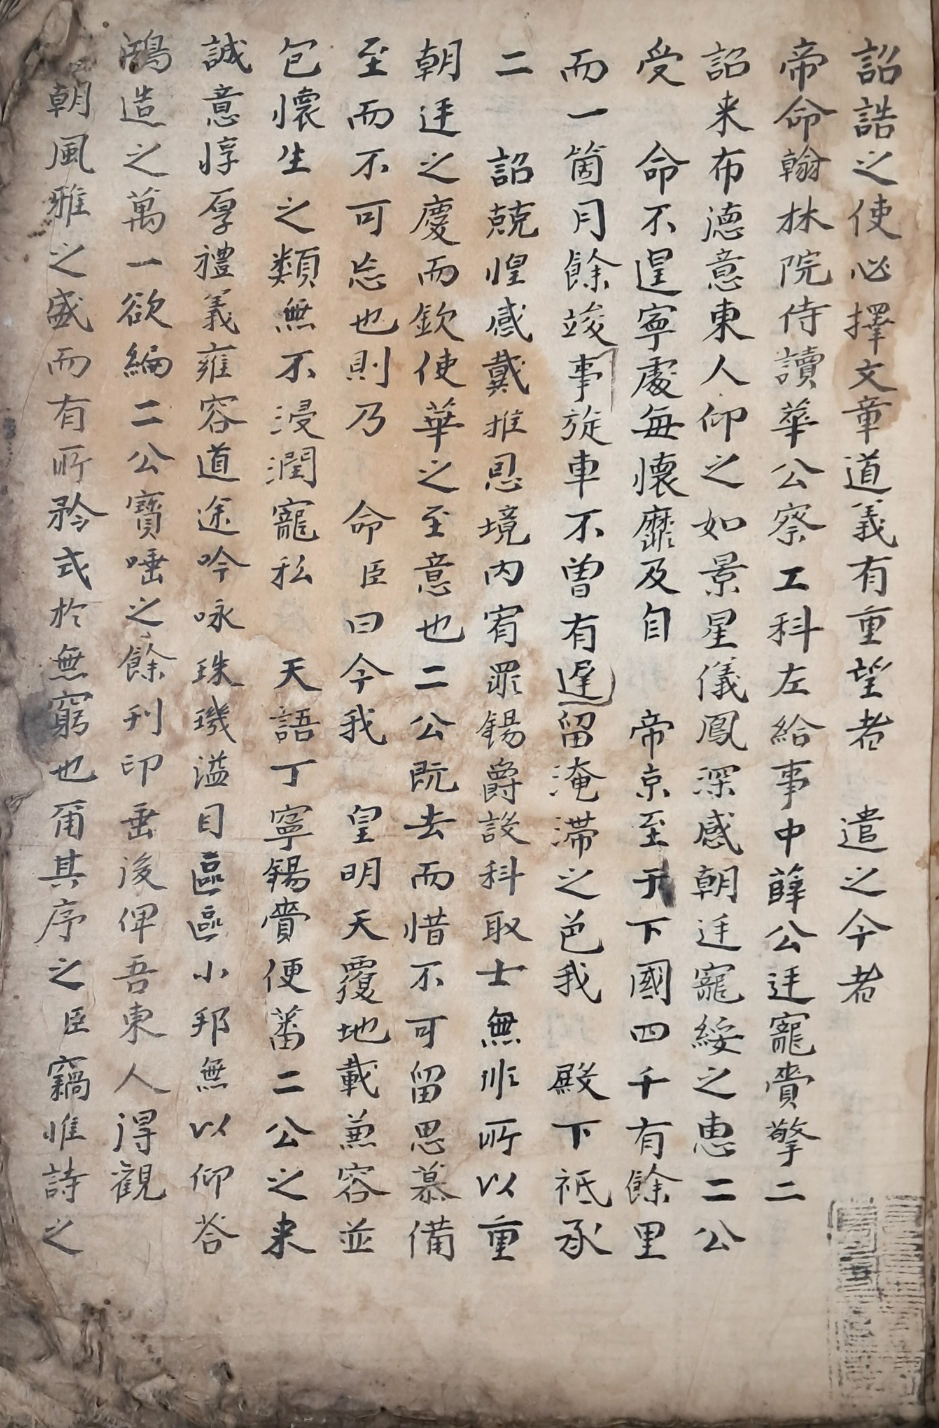 詔誥之使必擇文章道義有重望者　遣之今者
帝命翰林院侍讀華公察工科左給事中薛公廷寵賫擎二
詔来布德意東人仰之如景星儀鳳深感朝廷寵綏之恵二公
受　命不遑寧處每懷靡及自　帝京至于下國四千有餘里
而一箇月餘竣事旋車不曽有遅留淹滯之色我　殿下祗承
二　詔兢惶感戴推恩境内宥罪錫爵設科取士無非所以重
朝廷之慶而欽使華之至意也二公既去而惜不可留思慕備
至而不可忘也則乃　命臣曰今我　皇明天覆地載兼容並
包懷生之類無不浸潤寵私　天語丁寧錫賫便蕃二公之来
誠意惇厚禮義雍容道途吟咏珠璣溢目區區小邦無以仰荅
鴻造之萬一欲編二公寶唾之餘刊印垂後俾吾東人得觀
朝風雅之盛而有所矜式於無窮也爾其序之臣竊惟詩之